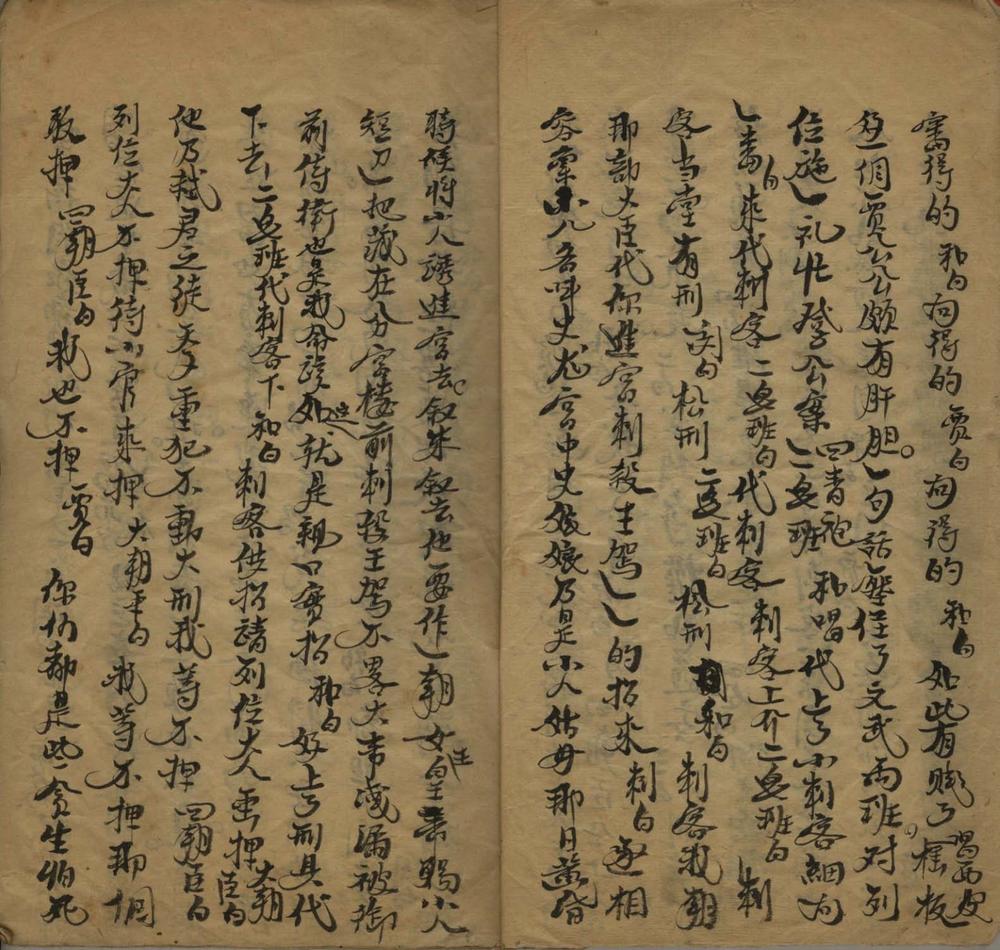 審得的 和白 问得的 賈白 问得的 和白 如此有賍了 唱西皮 摇板
好一個賈公公頗有肝胆 一句話壓住了文武两班 对列
位施一礼忙登公案 四青袍 二皂班 和唱代上了小刺客細问
一番 白 来代刺客 二皂班白 代刺客 刺客上介 二皂班白 刺
客当堂有刑 和白 松刑 二皂班白 松刑 和白 刺客我朝
那部大臣代你進宫刺殺主駕 一一的招来 刺白 丞相
容禀小人名叫史龙 宫中史娘娘乃是小人姑母 那日黄昏
時候将小人誘進宫去 叙来叙去他要作一朝女皇 賜小人
短刀一把藏在分宫楼前刺殺王駕 不畧大事洩漏被御
前侍衛也是我命該如此 這就是親口實招 和白 好上了刑具代
下去 二皂班代刺客下 和白 刺客供招請列位大人画押 大朝臣白
他乃弑君之徒天大重犯不動大刑我等不押 四朝臣白
列位大人不押待小官来押 大朝臣白 我等不押那個
敢押 四朝臣白 我也不押 賈白 你们都是些貪生怕死